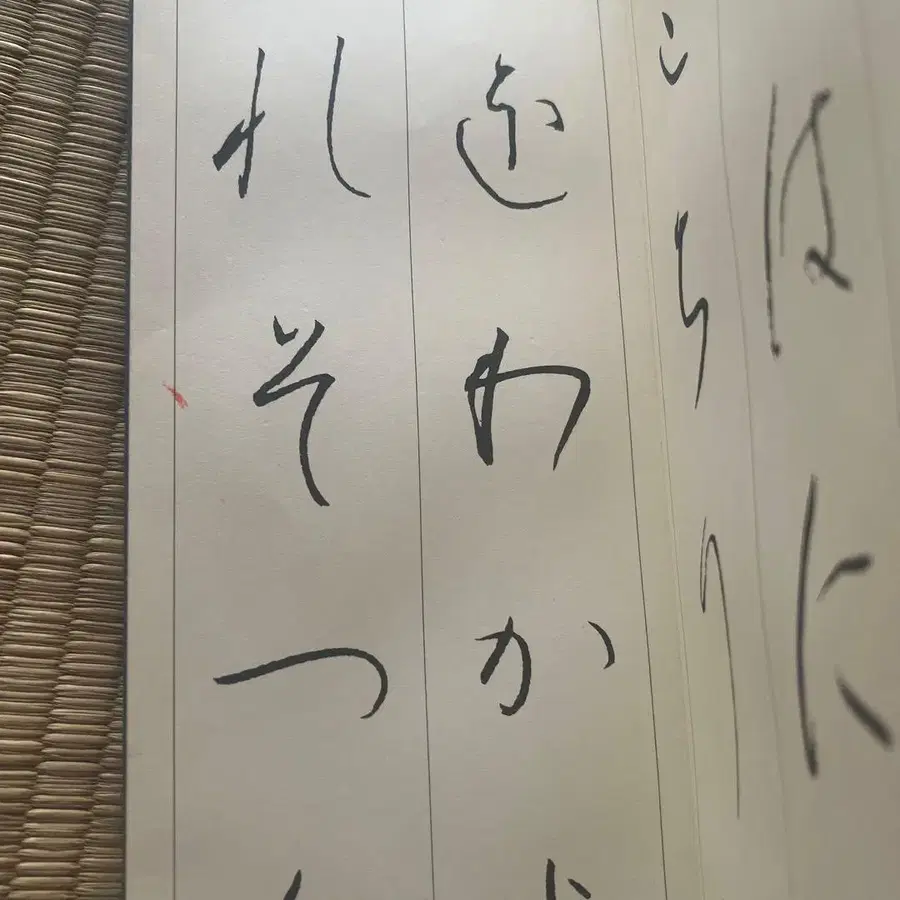 はに
ちり
をわか
れそつ